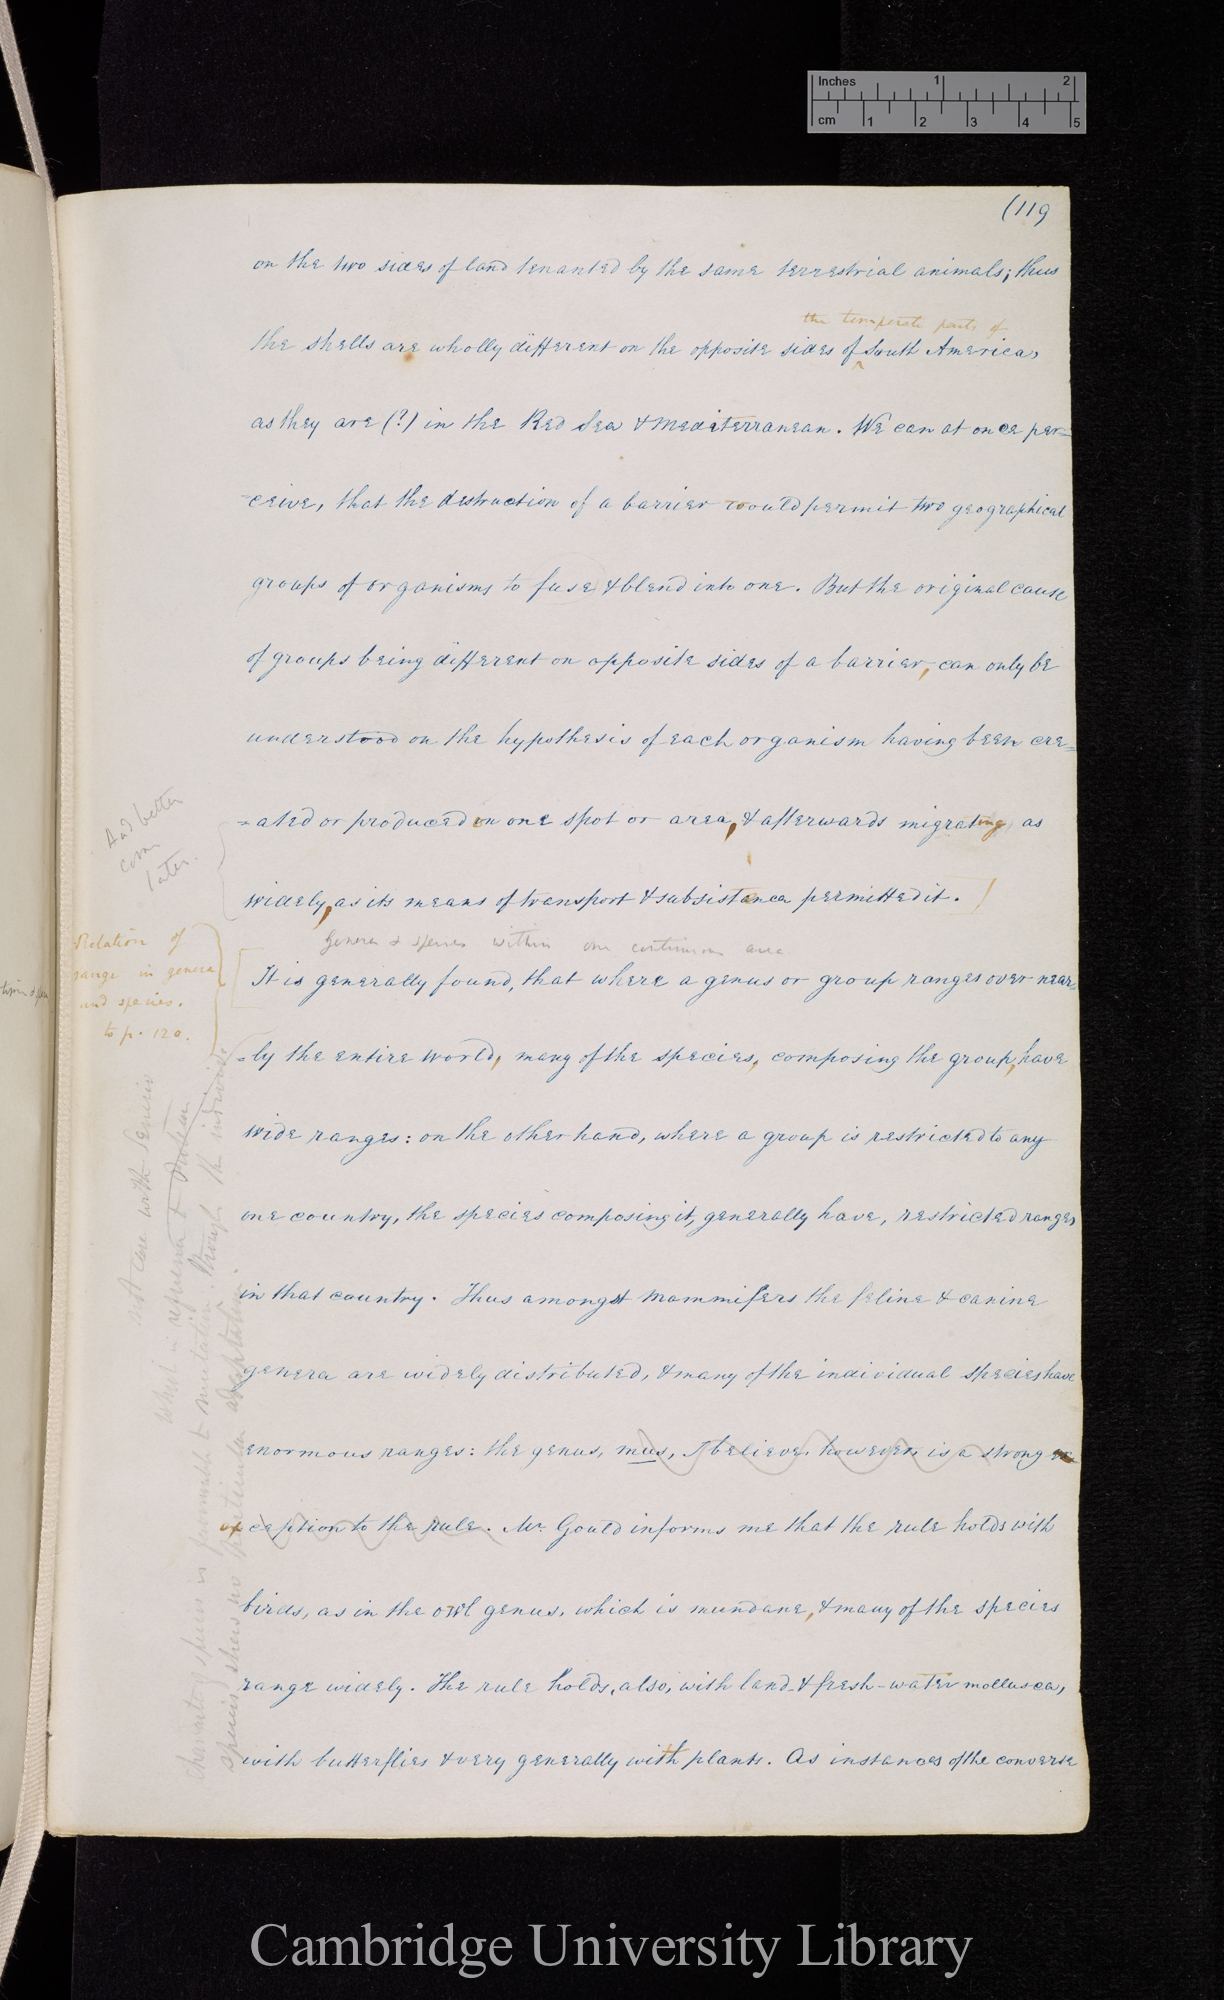 Inches 1 2
cm 1 2 3 4 5
(119
on the two sides of land tenanted by the same terrestrial animals; thus
the temperate parts of
the shells are wholly different on the opposite sides of South America,
as they are (?) in the Red Sea & Mediterranean. We can at once per=
=ceive, that the destruction of a barrier would permit two geographical
groups of organisms to fuse & blend into one. But the original cause
of groups being different on opposite sides of a barrier, can only be
understood on the hypothesis of each organism having been cre=
=ated or produced on one spot or area, & afterwards migrating as
widely, as its means of transport & subsistence permitted it.
And better
come
later.
Genera & species within one continuous area
Relation of
range in genera
and species.
to p. 120.
It is generally found, that where a genus or group ranges over near=
=ly the entire world, many of the species, composing the group, have
wide ranges: on the other hand, where a group is restricted to any
one country, the species composing it, generally have, restricted ranges
in that country. Thus amongst mammifers the feline & canine
genera are widely distributed, & many of the individual species have
enormous ranges: the genus, mus, I believe, however, is a strong ex
ception to the rule. Mr. Gould informs me that the rule holds with
birds, as in the owl genus, which is mundane, & many of the species
range widely. The rule holds, also, with land- & fresh-water mollusca,
with butterflies & very generally with plants. As instances of the converse
not case with
mutation. though the
species shews no particular adaptation.
Cambridge University Library